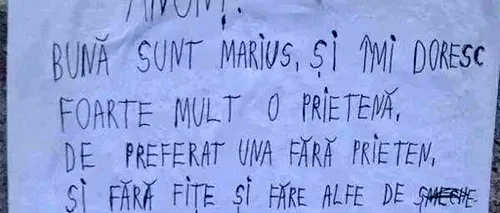 ANUNȚ:
BUNĂ SUNT MARIUS, ȘI ÎMI DORESC
FOARTE MULT O PRIETENĂ,
DE PREFERAT UNA FĂRĂ PRIETEN,
ȘI FĂRĂ FIȚE ȘI FĂRE ALFE DE